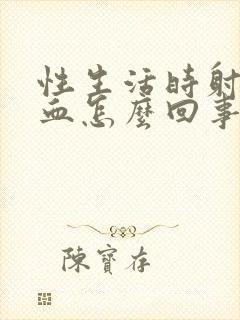 性生活時射
血怎麼回事
陳寶存